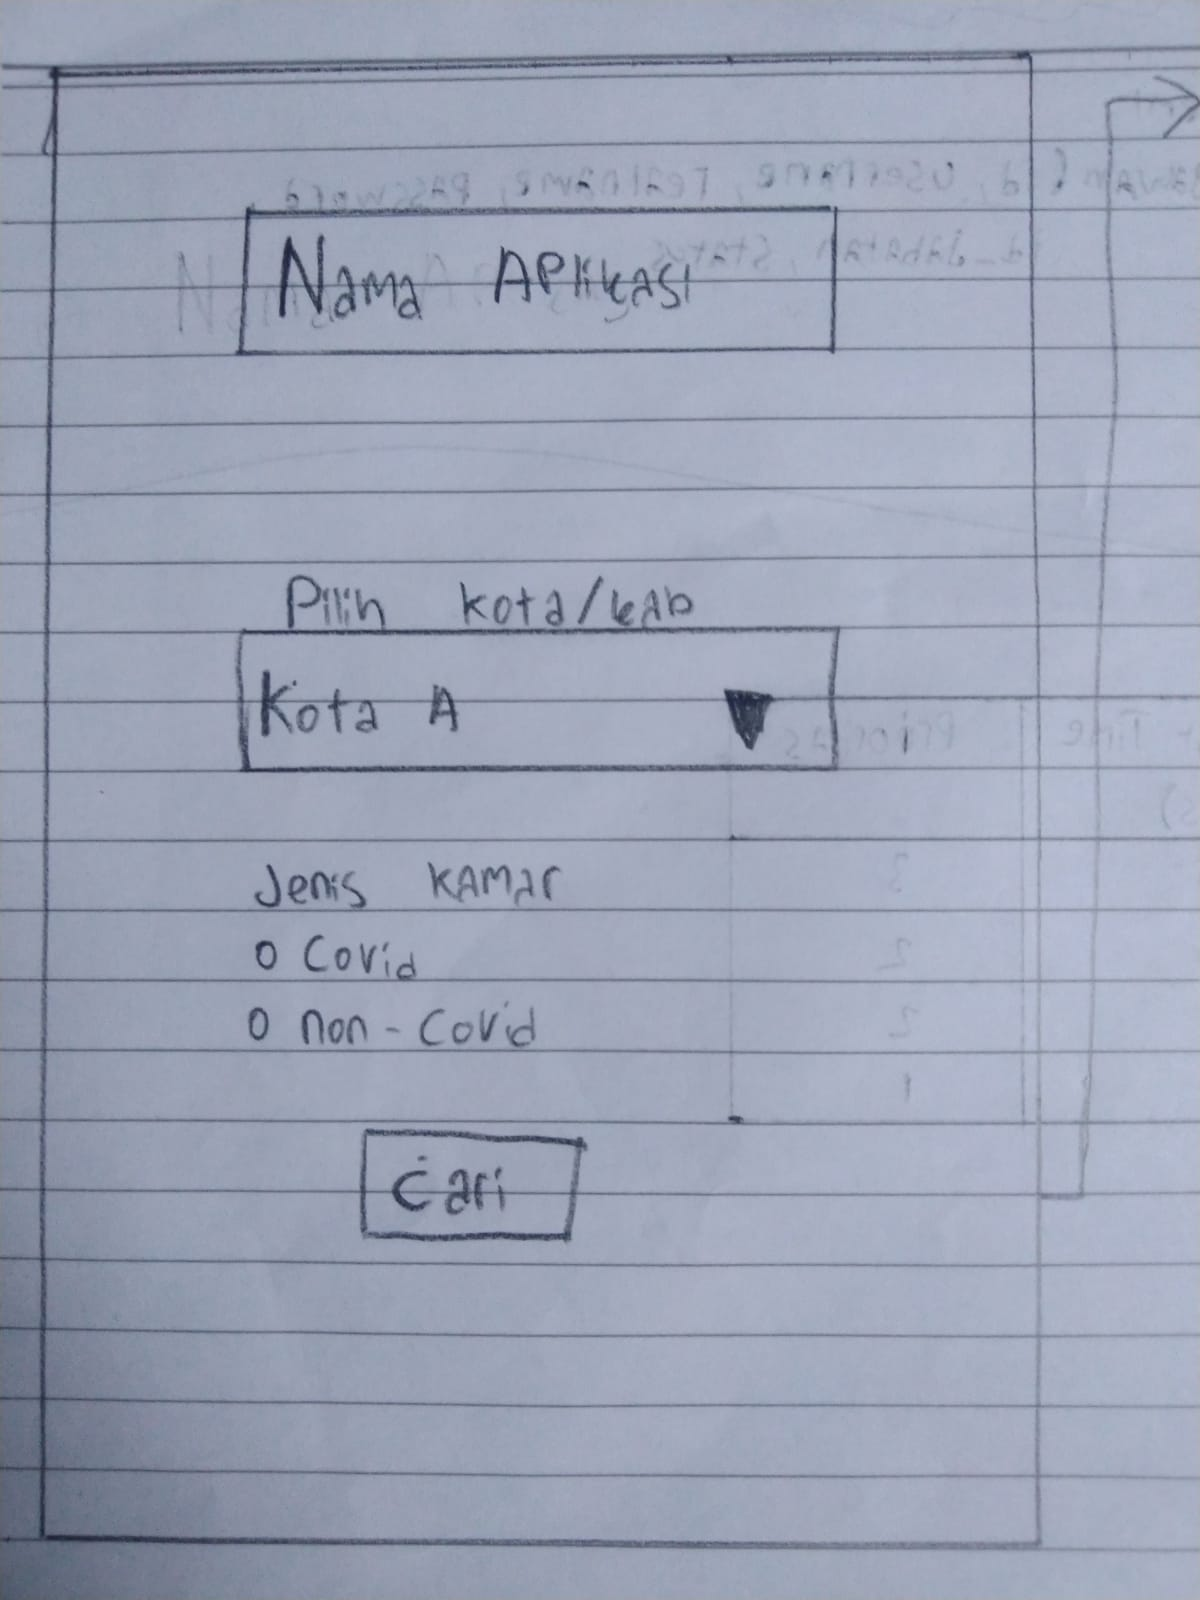 Nama Aplikasi
Pilih kota/kab
Kota A
Jenis Kamar
O Covid
O non-Covid
Cari